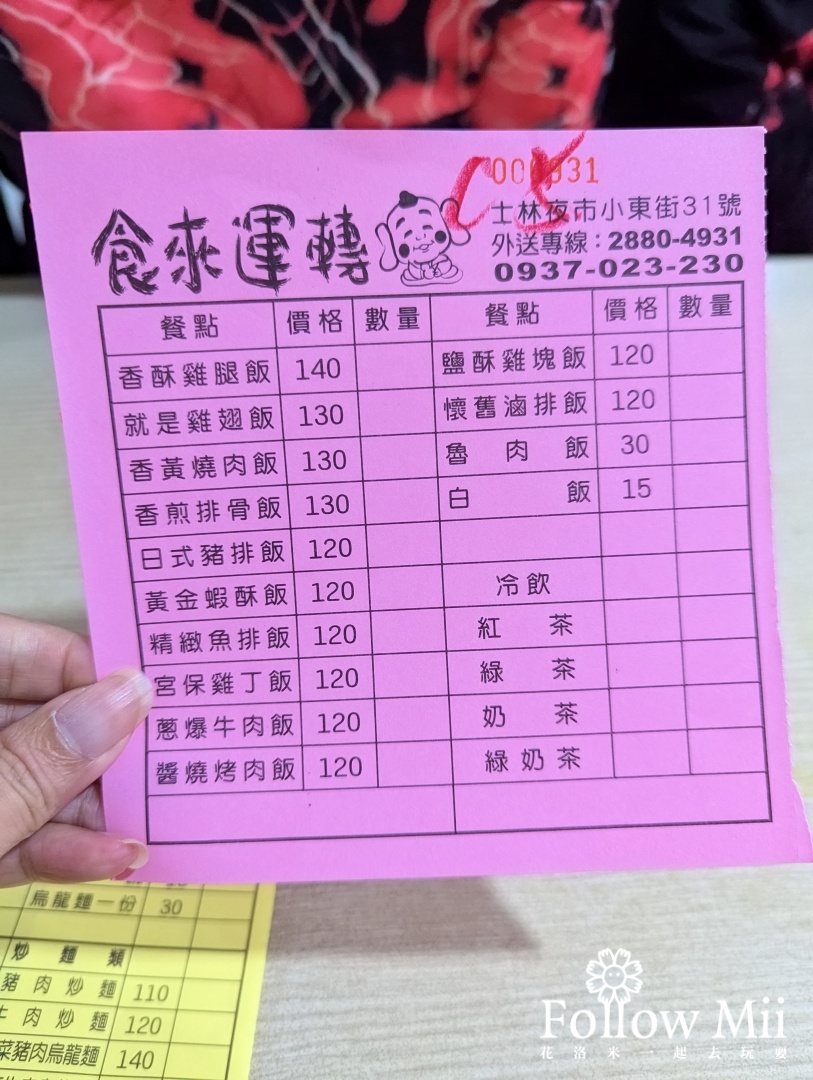 000931
食來運轉
士林夜市小東街31號
外送專線：2880-4931
0937-023-230
餐點 價格 數量 餐點 價格 數量
香酥雞腿飯 140 鹽酥雞塊飯 120
就是雞翅飯 130 懷舊滷排飯 120
香黃燒肉飯 130 魯肉飯 30
香煎排骨飯 130 白飯 15
日式豬排飯 120
黃金蝦酥飯 120 冷飲
精緻魚排飯 120 紅茶
宮保雞丁飯 120 綠茶
蔥爆牛肉飯 120 奶茶
醬燒烤肉飯 120 綠奶茶
烏龍麵一份 30
炒麵類
豬肉炒麵 110
牛肉炒麵 120
菜豬肉烏龍麵 140
Follow Mii
花洛米一起去玩耍